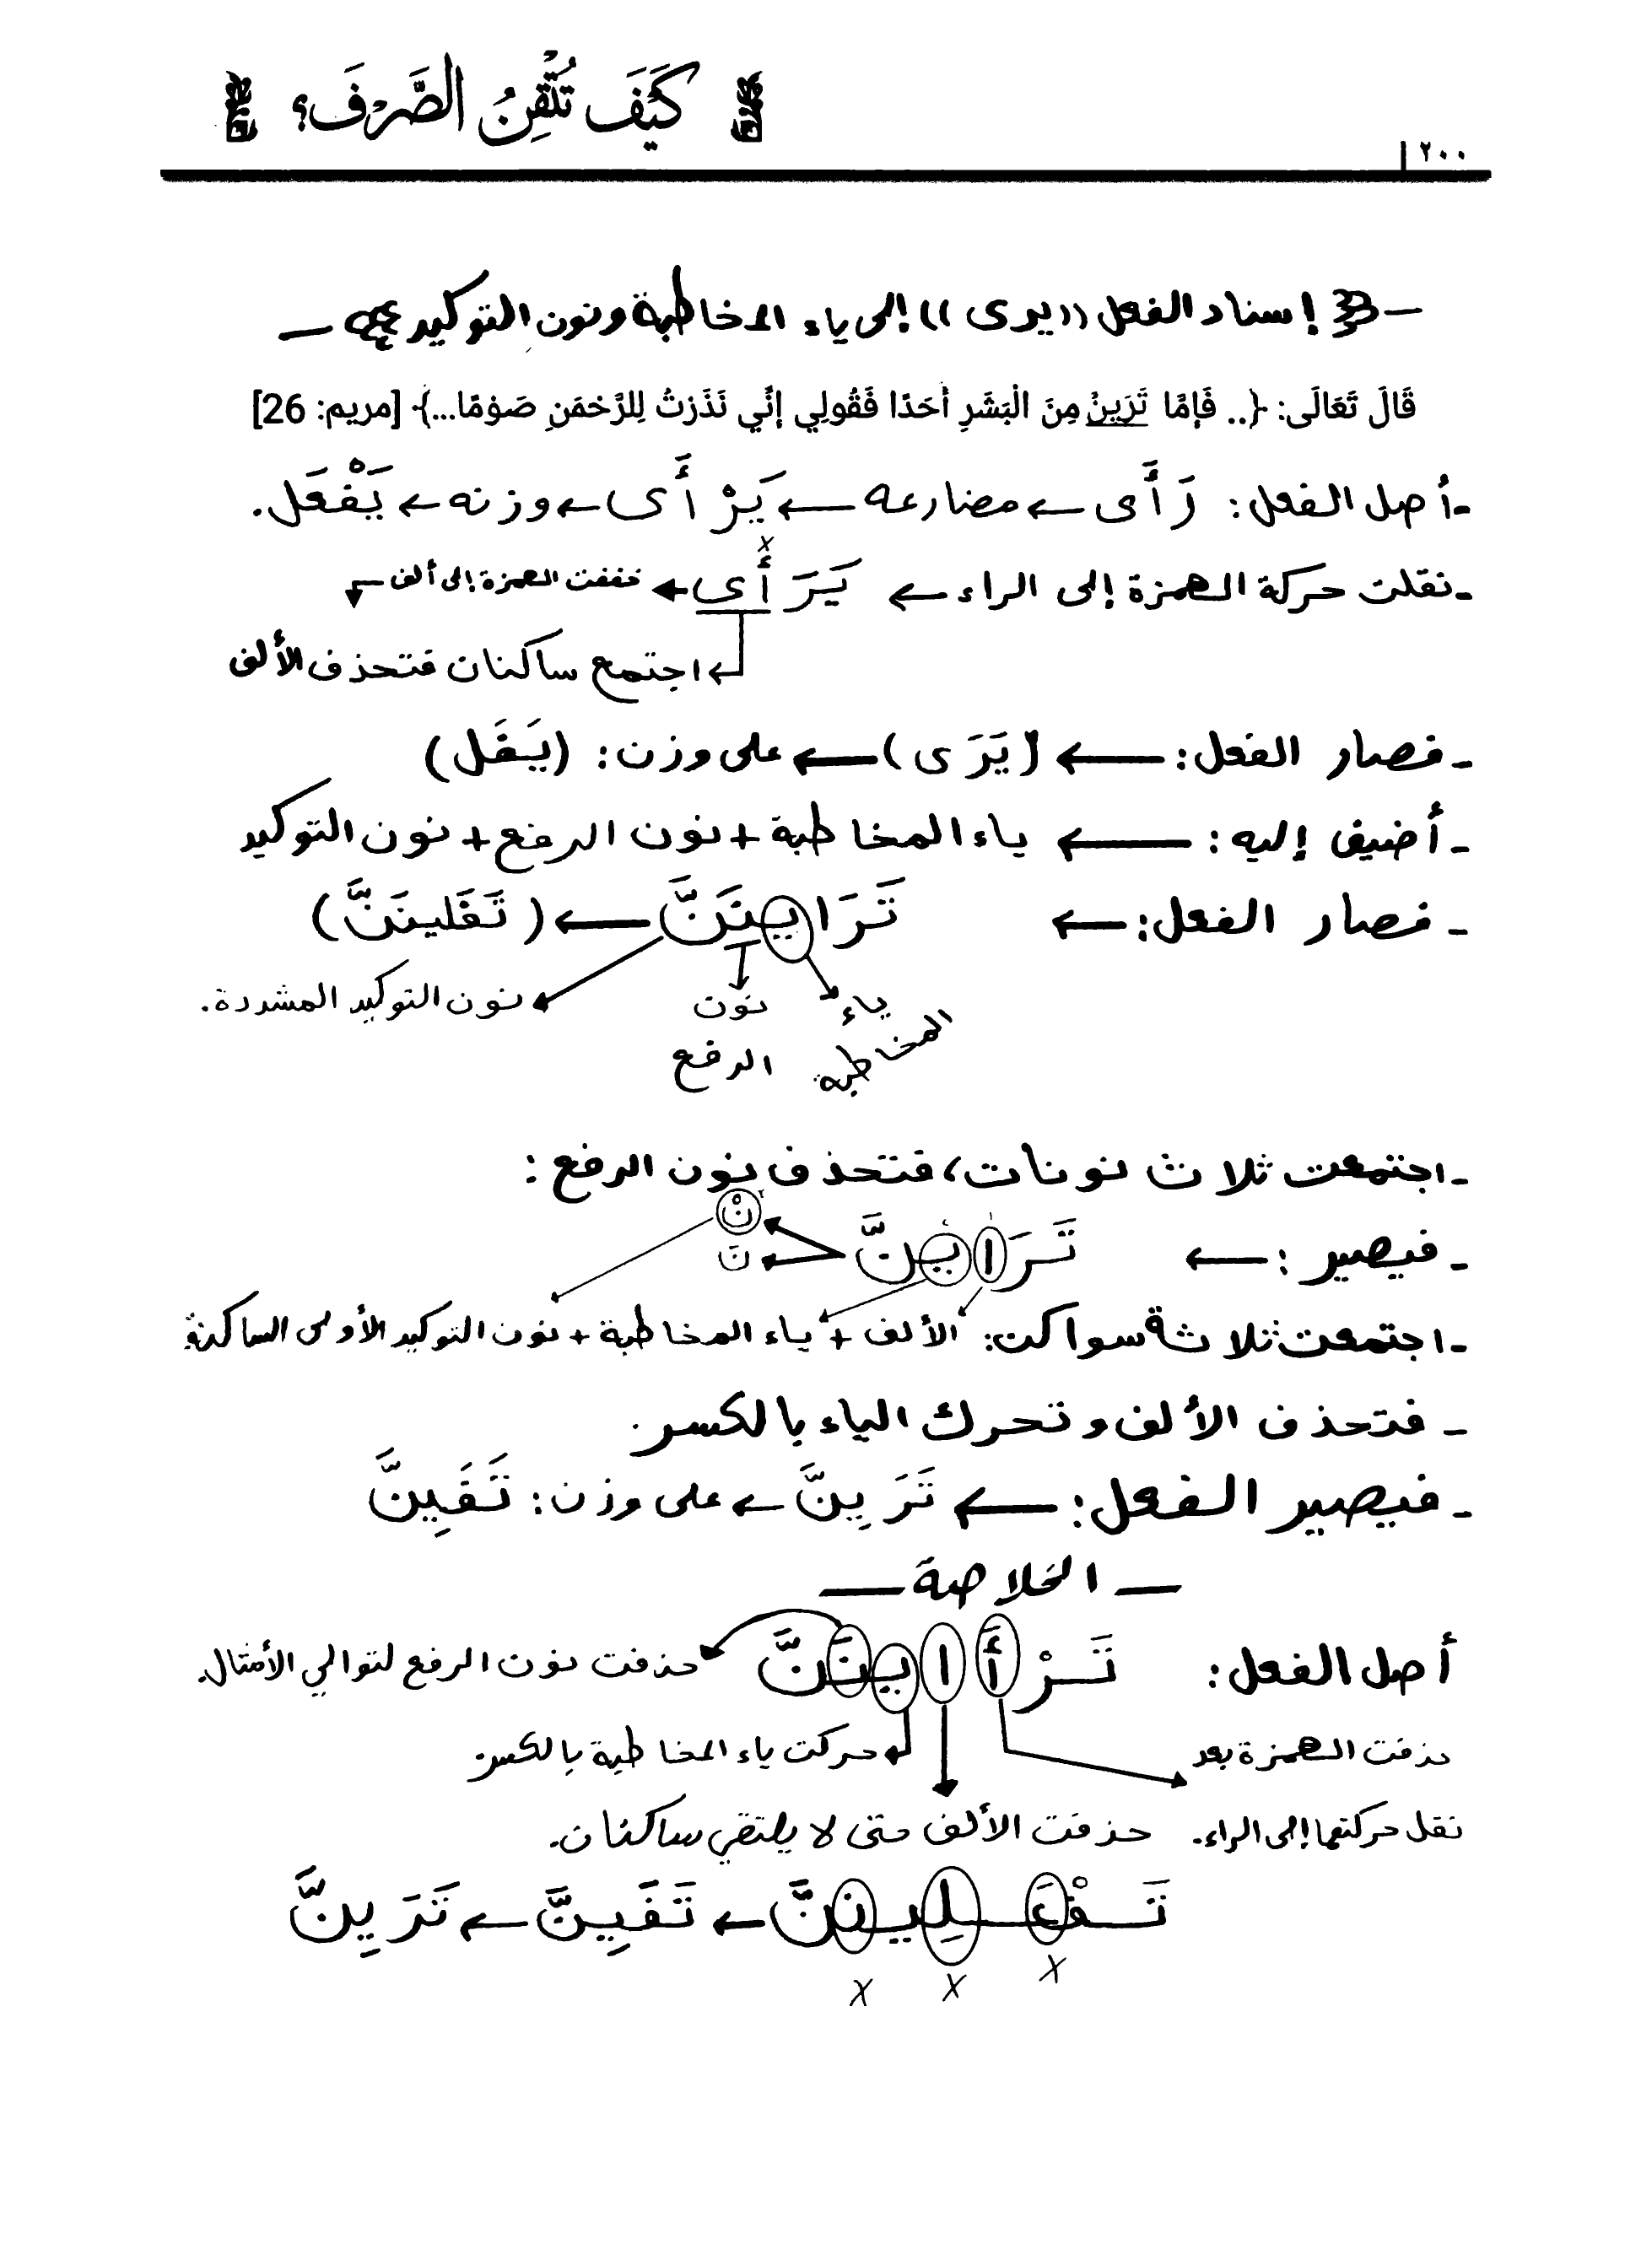 كَيْفَ تُتْقِنُ الصَّرْفَ؟
٢٠٠
إسناد الفعل ((يرى)) إلى ياء المخاطبة ونون التوكيد
قَالَ تَعَالَى: {.. فَإِمَّا تَرَيِنَّ مِنَ الْبَشَرِ أَحَدًا فَقُولِي إِنِّي نَذَرْتُ لِلرَّحْمَنِ صَوْمًا...} [مريم: 26]
-أصل الفعل: رَأَى ← مضارعه ← يَرْأَى ← وزنه ← يَفْعَل.
-نقلت حركة الهمزة إلى الراء ← يَرَأْى ← خففت الهمزة إلى ألف
x
← اجتمع ساكنان فتحذف الألف
- فصار الفعل: ← (يَرَى) ← على وزن: (يَفَل)
- أضيف إليه: ← ياء المخاطبة + نون الرفع + نون التوكيد
- فصار الفعل: ← تَرَاينَنَّ ← (تَفَلينَنَّ)
ياء المخاطبة
نون الرفع
نون التوكيد المشددة.
-اجتمعت ثلاث نونات، فتحذف نون الرفع:
- فيصير: ← تَرَاينَّ
نْ
نَ
-اجتمعت ثلاثة سواكن: الألف + ياء المخاطبة + نون التوكيد الأولى الساكنة
- فتحذف الألف وتحرك الياء بالكسر.
- فيصير الفعل: ← تَرَيِنَّ ← على وزن: تَفَيِنَّ
— الخلاصة —
أصل الفعل: تَرْأَاينَنَّ
حذفت نون الرفع لتوالي الأمثال.
حركت ياء المخاطبة بالكسر.
حذفت الهمزة بعد
نقل حركتها إلى الراء.
حذفت الألف حتى لا يلتقي ساكنان.
تَفْعَلِينَنَّ ← تَفَيِنَّ ← تَرَيِنَّ
x x x